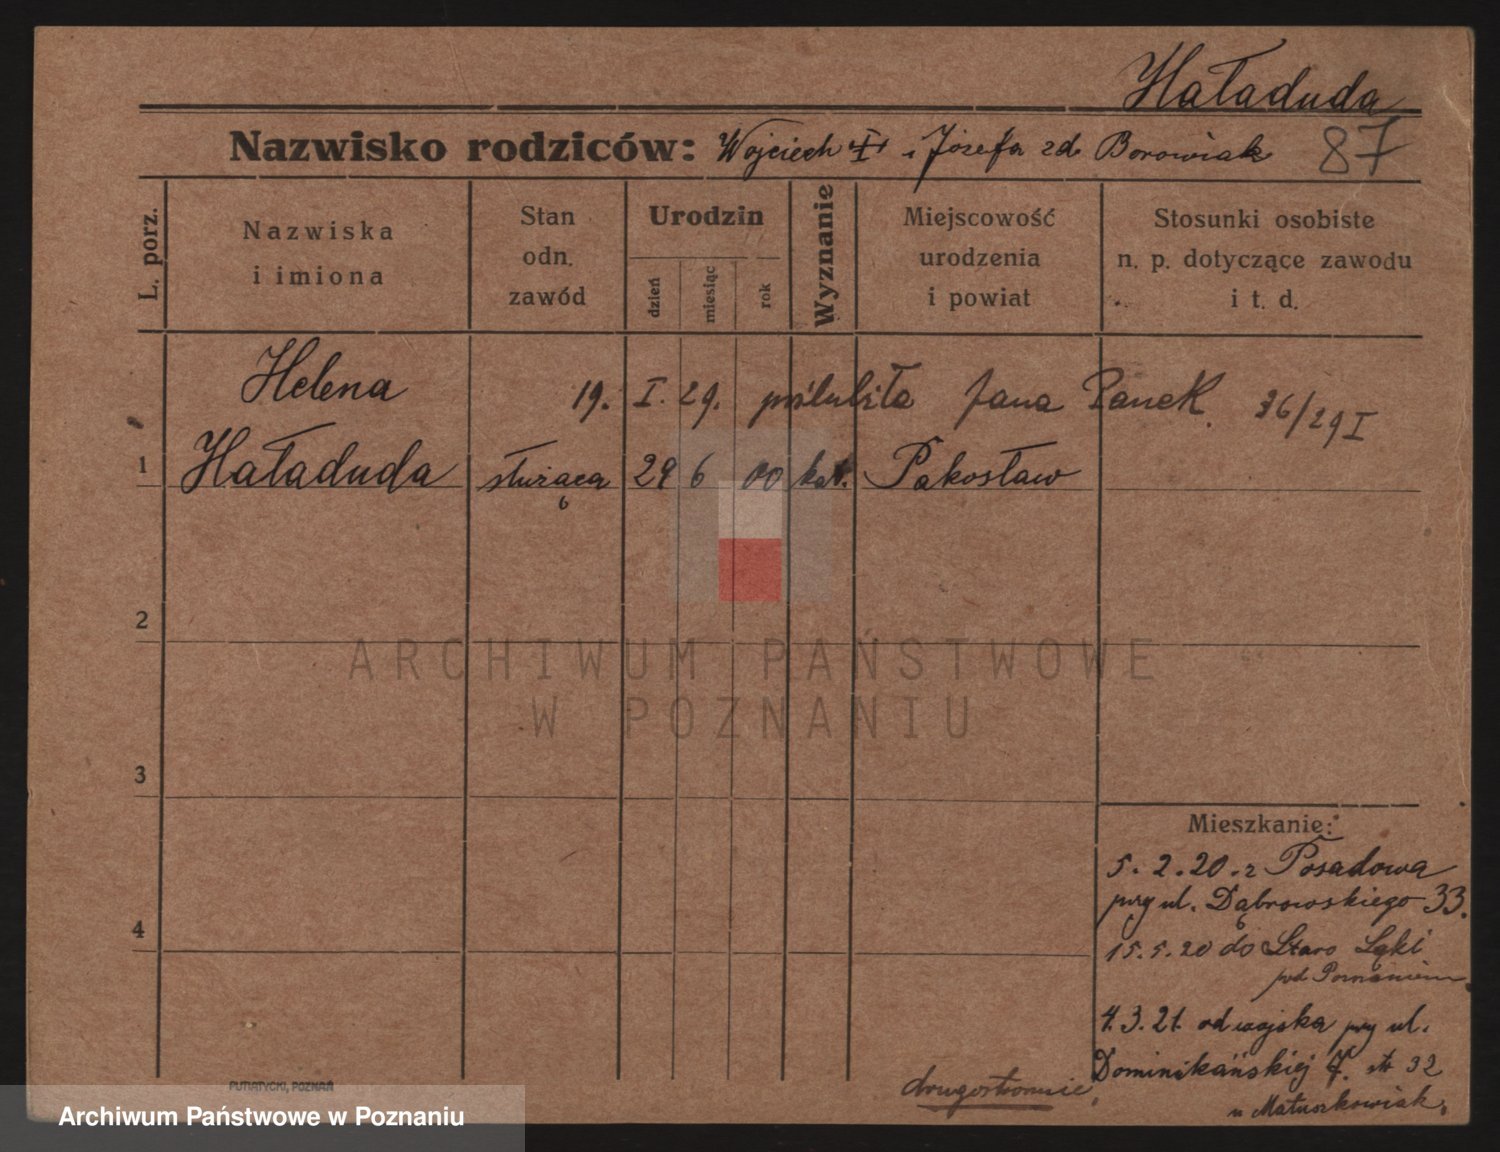 Haładuda
Nazwisko rodziców: Wojciech i Józefa zd. Borowiak 87
L. porz.
Nazwiska
i imiona
Stan
odn.
zawód
Urodzin
dzień
miesiąc
rok
Wyznanie
Miejscowość
urodzenia
i powiat
Stosunki osobiste
n. p. dotyczące zawodu
i t. d.
Helena 19. I. 29. poślubiła Jana Panek. 36/29 I
1 Haładuda służąca 29 6 00 kat. Pakosław
2
3
4
ARCHIWUM PAŃSTWOWE
W POZNANIU
Mieszkanie:
5. 2. 20. z Posadowa
przy ul. Dąbrowskiego 33.
15. 5. 20 do Staro Łąki
pod Poznaniem
4. 3. 21. od wojska przy ul.
Dominikańskiej 7. 32
u Matuszkowiak.
drugostronnie,
PUTIATYCKI, POZNAŃ
Archiwum Państwowe w Poznaniu